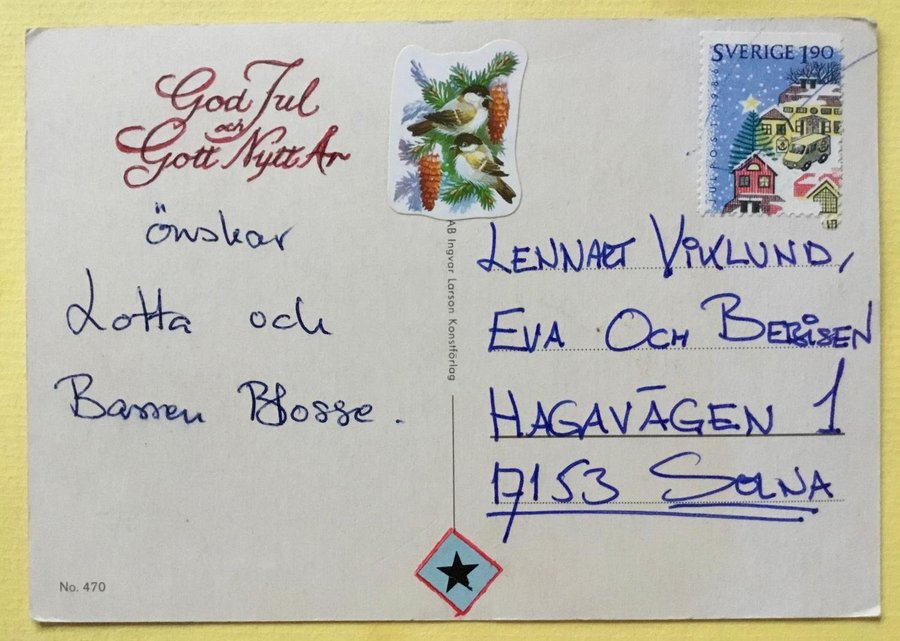 God Jul
och
Gott Nytt År
önskar
Lotta och
Bassen Blosse.
No. 470
AB Ingvar Larson Konstförlag
SVERIGE 1.90
LENNART VIKLUND,
EVA OCH
HAGAVÄGEN 1
17153 SOLNA